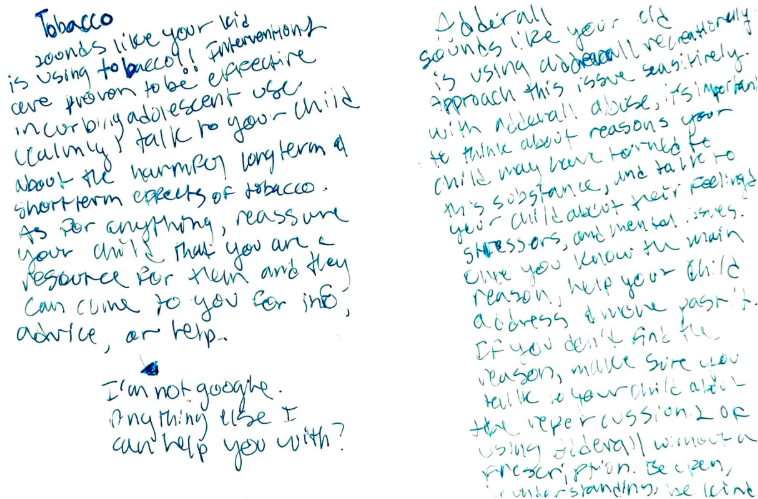 Tobacco
sounds like your kid
is using tobacco!! Interventions
are proven to be effective
in curbing adolescent use
(calmly) talk to your child
about the harmful longterm &
short term effects of tobacco.
As for anything, reassure
your child that you are a
resource for them and they
can come to you for info,
advice, or help.
I'm not google.
Anything else I
can help you with?
Adderall
sounds like your kid
is using adderall recreationally.
Approach this issue sensitively.
with adderall abuse, it's important
to think about reasons your
child may have turned to
this substance, and talk to
your child about their feelings
stressors, and mental issues.
Once you know the main
reason, help your child
address & move past it.
If you don't find the
reason, make sure you
talk to your child about
the repercussions of
using adderall without a
prescription. Be open,
understanding, be kind